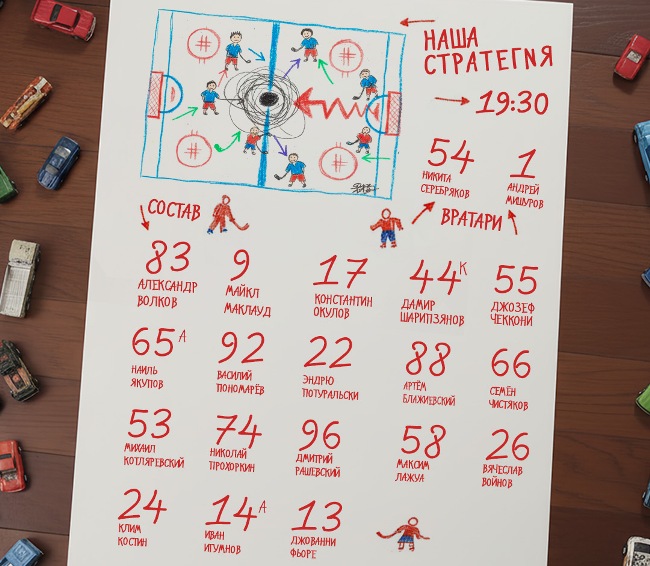 НАША
СТРАТЕГИЯ
19:30
54
НИКИТА
СЕРЕБРЯКОВ
1
АНДРЕЙ
МИШУРОВ
СОСТАВ
ВРАТАРИ
83
АЛЕКСАНДР
ВОЛКОВ
9
МАЙКЛ
МАКЛАУД
17
КОНСТАНТИН
ОКУЛОВ
44К
ДАМИР
ШАРИПЗЯНОВ
55
ДЖОЗЕФ
ЧЕККОНИ
65А
НАИЛЬ
ЯКУПОВ
92
ВАСИЛИЙ
ПОНОМАРЁВ
22
ЭНДРЮ
ПОТУРАЛЬСКИ
88
АРТЁМ
БЛАЖИЕВСКИЙ
66
СЕМЁН
ЧИСТЯКОВ
53
МИХАИЛ
КОТЛЯРЕВСКИЙ
74
НИКОЛАЙ
ПРОХОРКИН
96
ДМИТРИЙ
РАШЕВСКИЙ
58
МАКСИМ
ЛАЖУА
26
ВЯЧЕСЛАВ
ВОЙНОВ
24
КЛИМ
КОСТИН
14А
ИВАН
ИГУМНОВ
13
ДЖОВАННИ
ФЬОРЕ